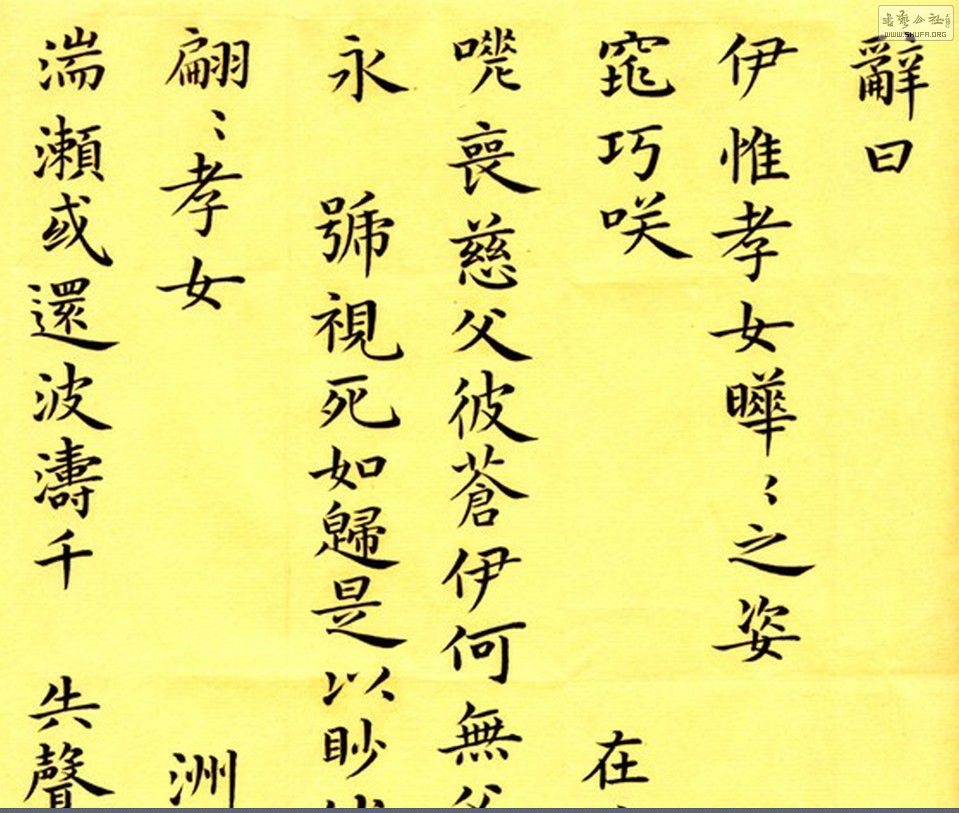 辭曰
伊惟孝女曄〻之姿
窕巧咲 在
嗟喪慈父彼蒼伊何無父
永 號視死如歸是以眇
翩〻孝女 洲
湍瀨或還波濤千 失聲
WWW.SHUFA.ORG